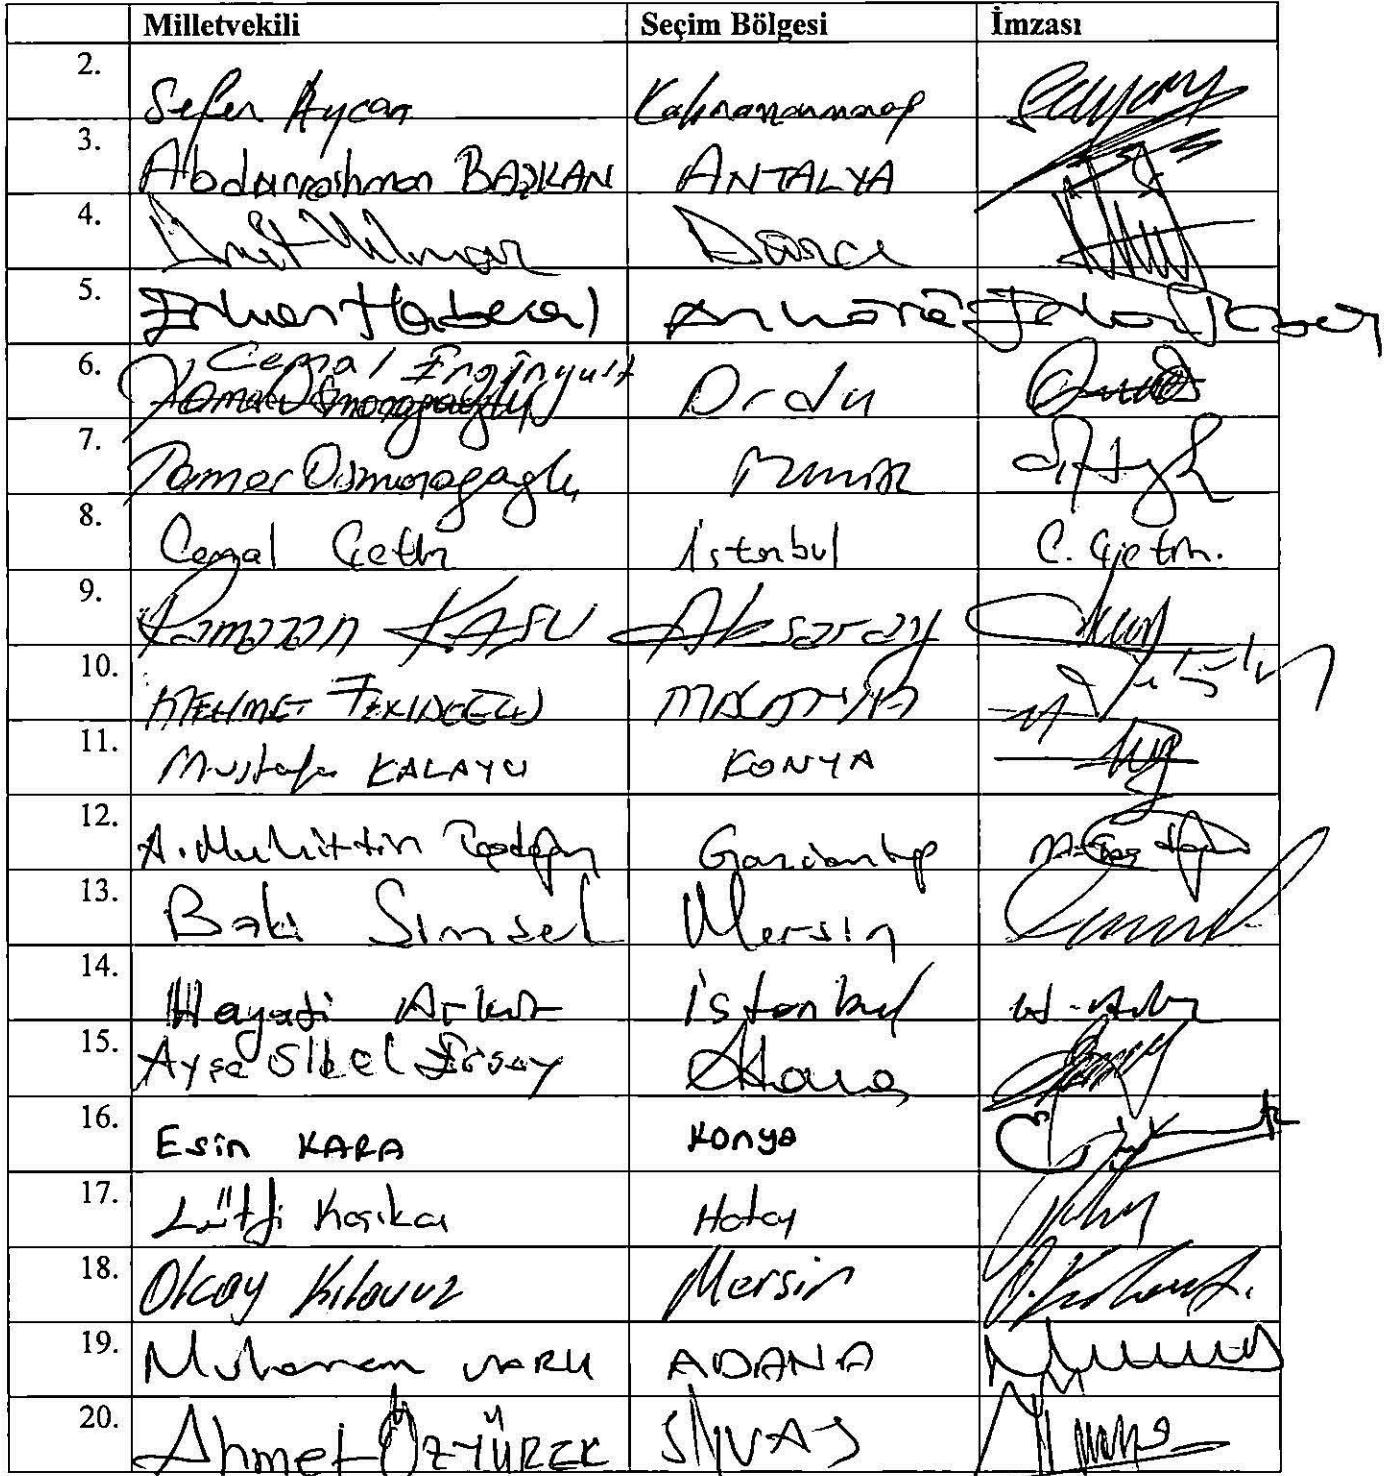 Milletvekili Seçim Bölgesi İmzası
2. Sefer Aycan Kahramanmaraş
3. Abdurrahman BAŞKAN ANTALYA
4. Ümit Yılmaz Düzce
5. Erkan Haberal Ankara
6. Cemal Enginyurt Ordu
7. Tamer Osmanağaoğlu İzmir
8. Cemal Çetin İstanbul C. Çetin.
9. Ramazan KAŞLI Aksaray
10. MEHMET FENDOĞLU MALATYA
11. Mustafa KALAYCI KONYA
12. A. Muhittin Taşdoğan Gaziantep
13. Baki Şimşek Mersin
14. Hayati Arkaz İstanbul
15. Ayşe Sibel Ersoy Adana
16. Esin KARA Konya
17. Lütfi Kaşıkçı Hatay
18. Olcay Kılavuz Mersin
19. Muharrem VARLI ADANA
20. Ahmet ÖZYÜREK SİVAS